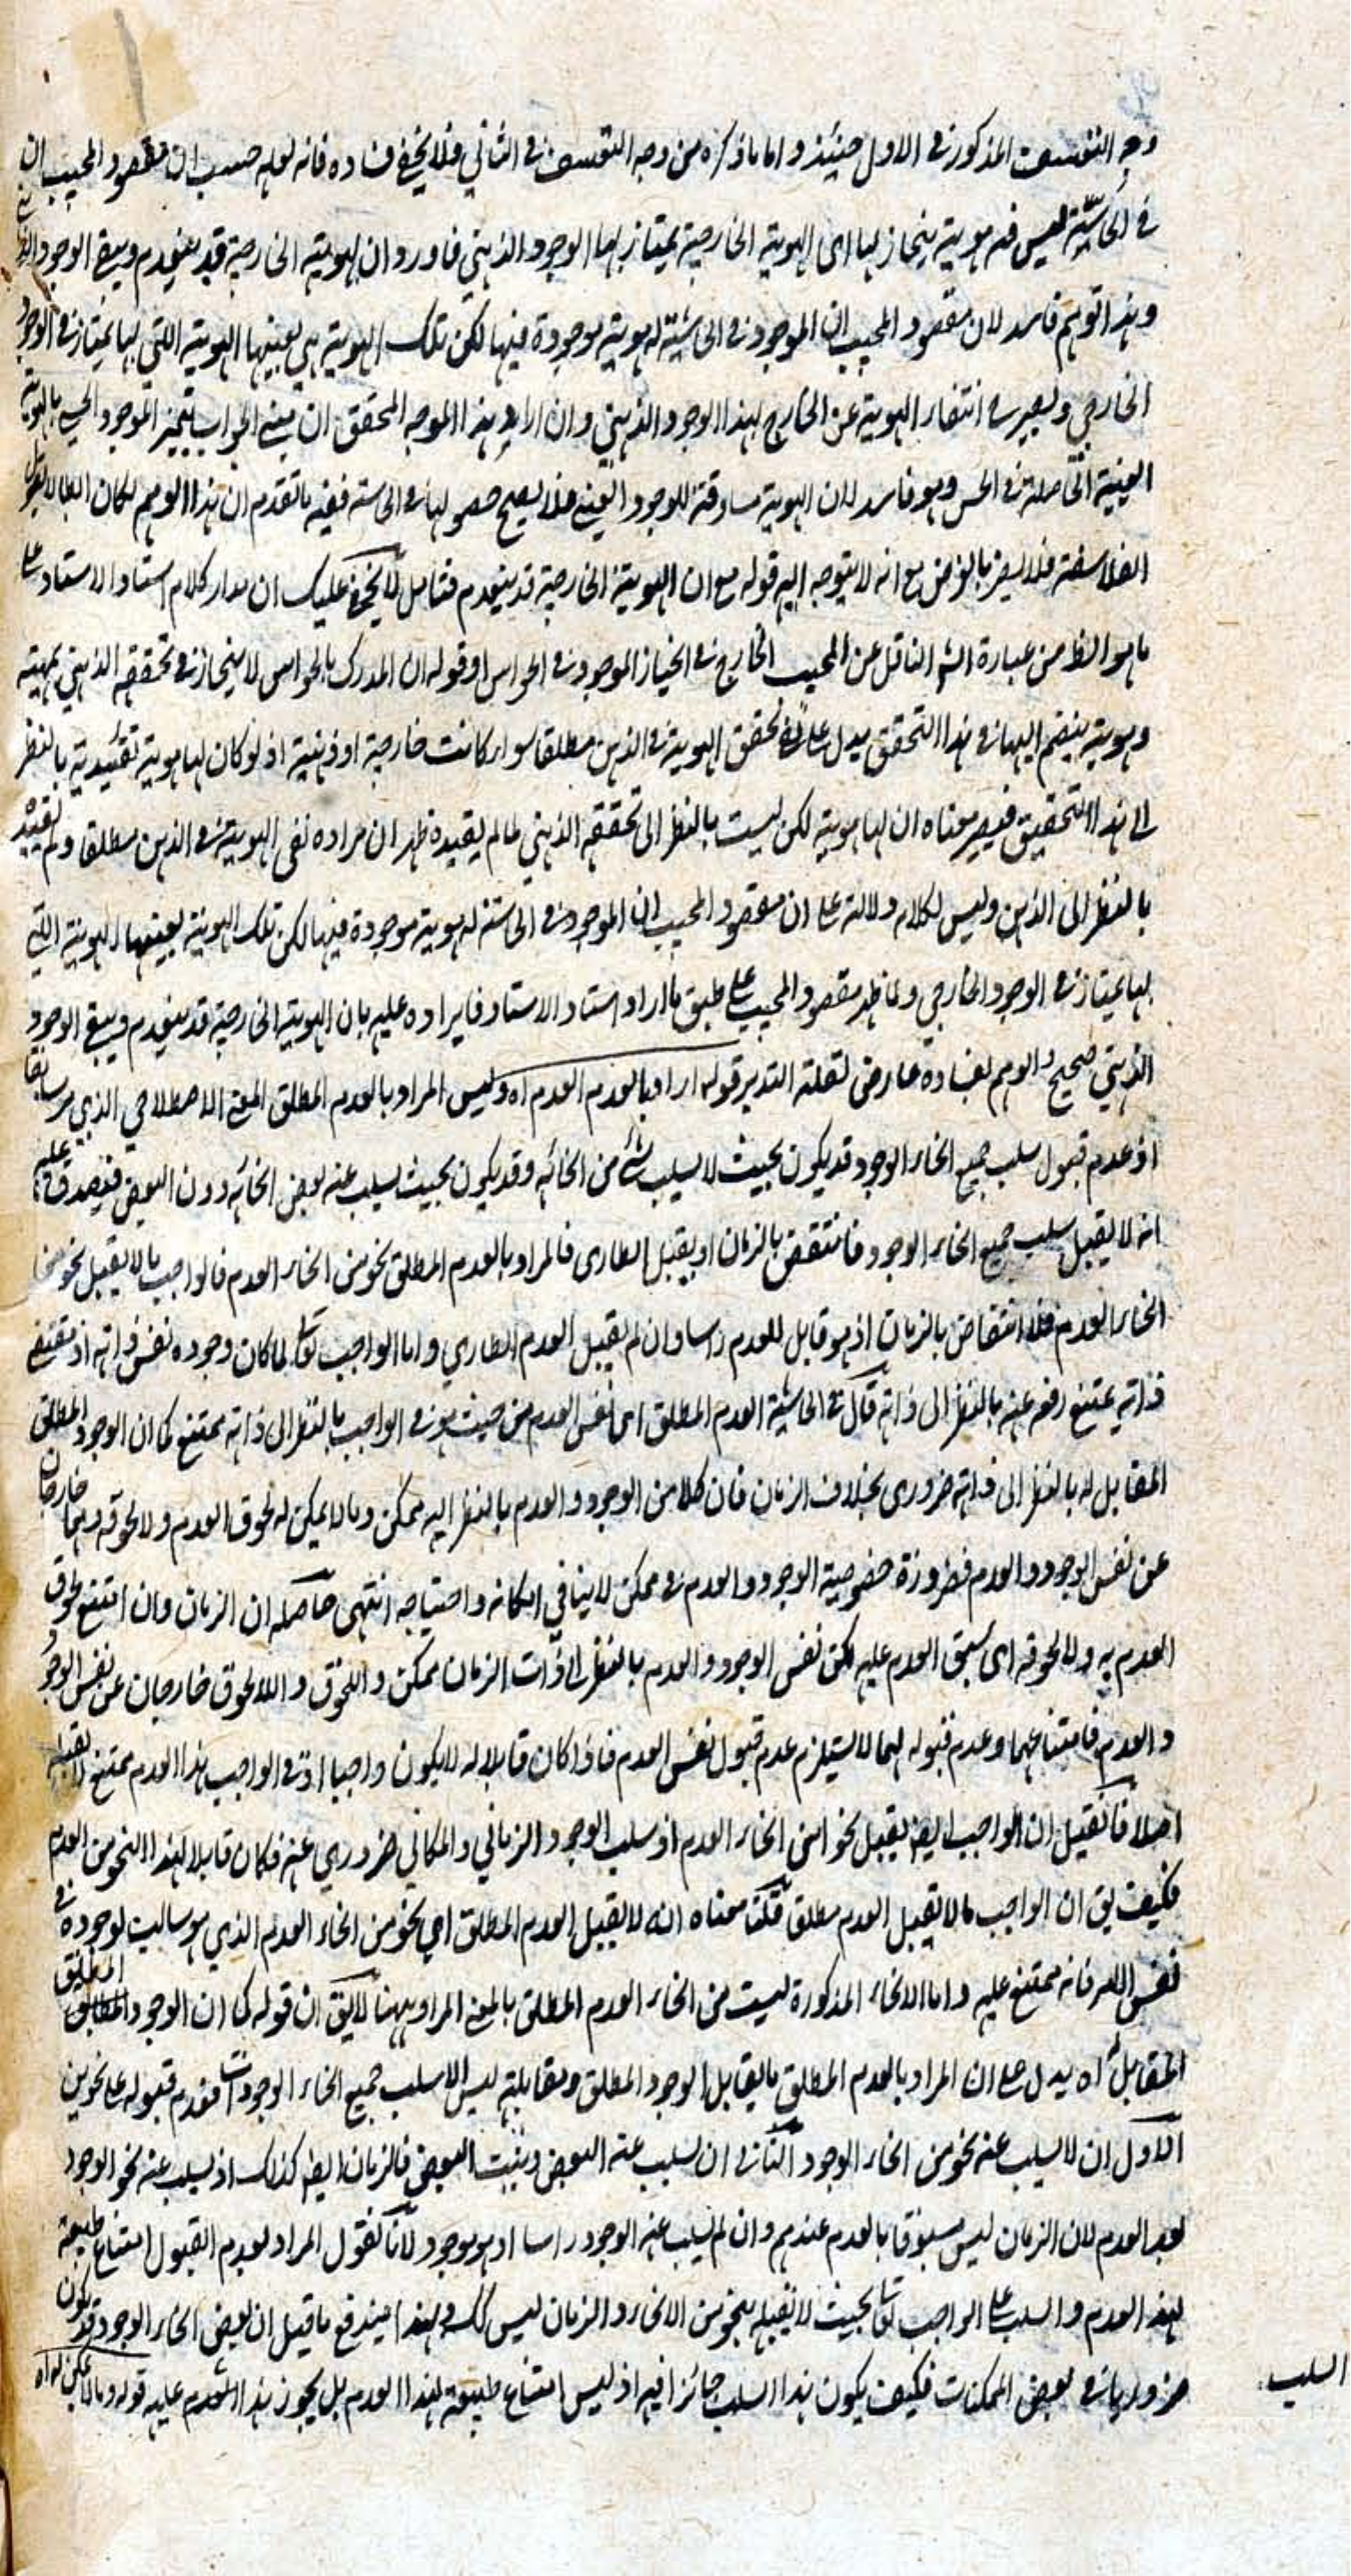 وجه التعسف المذكور في الاول حينئذ واما ما ذكره من وجه التعسف في الثاني فلا يخفى فساده فانه لعله حسب ان مقصود المجيب ان
في الحاسة ليس فيه هوية ينحاز بها اى الهوية الخارجية يمتاز بها الوجود الذهني فاورد ان الهوية الخارجية قد ينعدم ويبقى الوجود
وهذا توهم فاسد لان مقصود المجيب ان الموجود في الحاسة له هوية موجودة فيها لكن تلك الهوية هي بعينها الهوية اللتى بها يمتاز في الوجود
الخارجي ولصيرره انتفاء الهوية عن الخارج لهذا الوجود الذهني وان اراد هذا الموجه المحقق ان مبنى الجواب تميز الموجود الحسي بالهوية
العينية الحاصلة في الحس وهو فاسد لان الهوية مساوقة للوجود العيني فلا يصح حصولها في الحاسة ففيه ما تقدم ان هذا الوهم لكان ابطالا لقول
الفلاسفة فلا يضر بالغرض مع انه لا يتوجه اليه قوله مع ان الهوية الخارجية قد ينعدم فتامل لا يخفى عليك ان مدار كلام استاد الاستاد على
ما هو الظ من عبارة الش الناقل عن المجيب الخارج في انحياز الموجود في الحواس او قوله ان المدرك بالحواس لا ينحاز في تحققه الذهني بمهية
وهوية ينضم اليها في هذا التحقق يدل على نفي تحقق الهوية في الذهن مطلقا سواء كانت خارجية او ذهنية اذ لو كان لها هوية تقييدية بالنظر
الى هذا التحقيق فيصير معناه ان لها هوية لكن ليست بالنظر الى تحققه الذهني فما لم يقيده ظهر ان مراده نفي الهوية في الذهن مطلقا ولم يقيد
بالنظر الى الذهن وليس لكلامه دلالة على ان مقصود المجيب ان الموجود في الحاسة له هوية موجودة فيها لكن تلك الهوية بعينها الهوية اللتي
بها يمتاز في الوجود الخارجي ولما ظهر مقصود المجيب على طبق ما اراد استاد الاستاد فايراده عليه بان الهوية الخارجية قد ينعدم ويبقى الوجود
الذهني صحيح والوهم بفساده عارض لقلة التدبر قوله اراد بالعدم العدم اه وليس المراد بالعدم المطلق المعنى الاصطلاحي الذي مر سابقا
اذ عدم قبول سلب جميع انحاء الوجود قد يكون بحيث لا يسلب شئ من انحائه وقد يكون بحيث يسلب عنه بعض انحائه دون البعض فيصدق عليه
انه لا يقبل سلب جميع انحاء الوجود فانتقض بالزمان او يقبل الطارى فالمراد بالعدم المطلق نحو من انحاء العدم فالواجب ما لا يقبل نحوا من
انحاء العدم فلا انتقاض بالزمان اذ هو قابل للعدم راسا وان لم يقبل العدم الطاري واما الواجب تعالى لما كان وجوده نفس ذاته اذ مقتضى
ذاته يمتنع رفعه عنه بالنظر الى ذاته قال في الحاشية العدم المطلق اى نفس العدم من حيث هو في الواجب بالنظر الى ذاته ممتنع كما ان الوجود المطلق
المقابل له بالنظر الى ذاته ضرورى بخلاف الزمان فان كلا من الوجود والعدم بالنظر اليه ممكن وما لا يمكن له لحوق العدم ولا لحوقه وهما خارجان
عن نفس الوجود والعدم فضرورة خصوصية الوجود والعدم في ممكن لا ينافي امكانه واحتياجه انتهى حاصله ان الزمان وان امتنع لحوق
العدم به ولا لحوقه اى سبق العدم عليه لكن نفس الوجود والعدم بالنظر الى ذات الزمان ممكن واللحوق واللالحوق خارجان عن نفس الوجود
والعدم فامتناعهما وعدم قبوله لهما لا يستلزم عدم قبول نفس العدم فاذا كان قابلا له لا يكون واجبا اذ في الواجب هذا العدم ممتنع
اصلا فان قيل ان الواجب ايضا يقبل نحوا من انحاء العدم اذ سلب الوجود الزماني والمكاني ضروري عنه فكان قابلا لهذا النحو من العدم
فكيف يق ان الواجب ما لا يقبل العدم مطلق قلنا معناه انه لا يقبل العدم المطلق اى نحو من انحاء العدم الذي هو سالبت لوجوده في
نفس الامر فانه ممتنع عليه واما الانحاء المذكورة ليست من انحاء العدم المطلق بالمعنى المراد ههنا لا يق ان قوله كما ان الوجود المطلق
المقابل له اه يدل على ان المراد بالعدم المطلق ما يقابل الوجود المطلق ومقابله ليس الا سلب جميع انحاء الوجودات فعدم قبوله على نحوين
الاول ان لا يسلب عنه نحو من انحاء الوجود الثاني ان يسلب عنه البعض ويثبت البعض فالزمان ايضا كذلك اذ يسلب عنه نحو الوجود
بعد العدم لان الزمان ليس مسبوقا بالعدم عندهم وان لم يسلب عنه الوجود راسا اذ هو موجود لانا نقول المراد بعدم القبول امتناع طبيعة
لهذ العدم والسلب على الواجب تعالى بحيث لا يقبله بنحو من الانحاء والزمان ليس كك وبهذا يندفع ما قيل ان بعض انحاء الوجود قد يكون
ضروريا في بعض الممكنات فكيف يكون هذا السلب جائزا فيه اذ ليس امتناع طبيعة لهذا العدم بل يجوز هذا العدم عليه قوله وما لا يمكن له اه
السلب